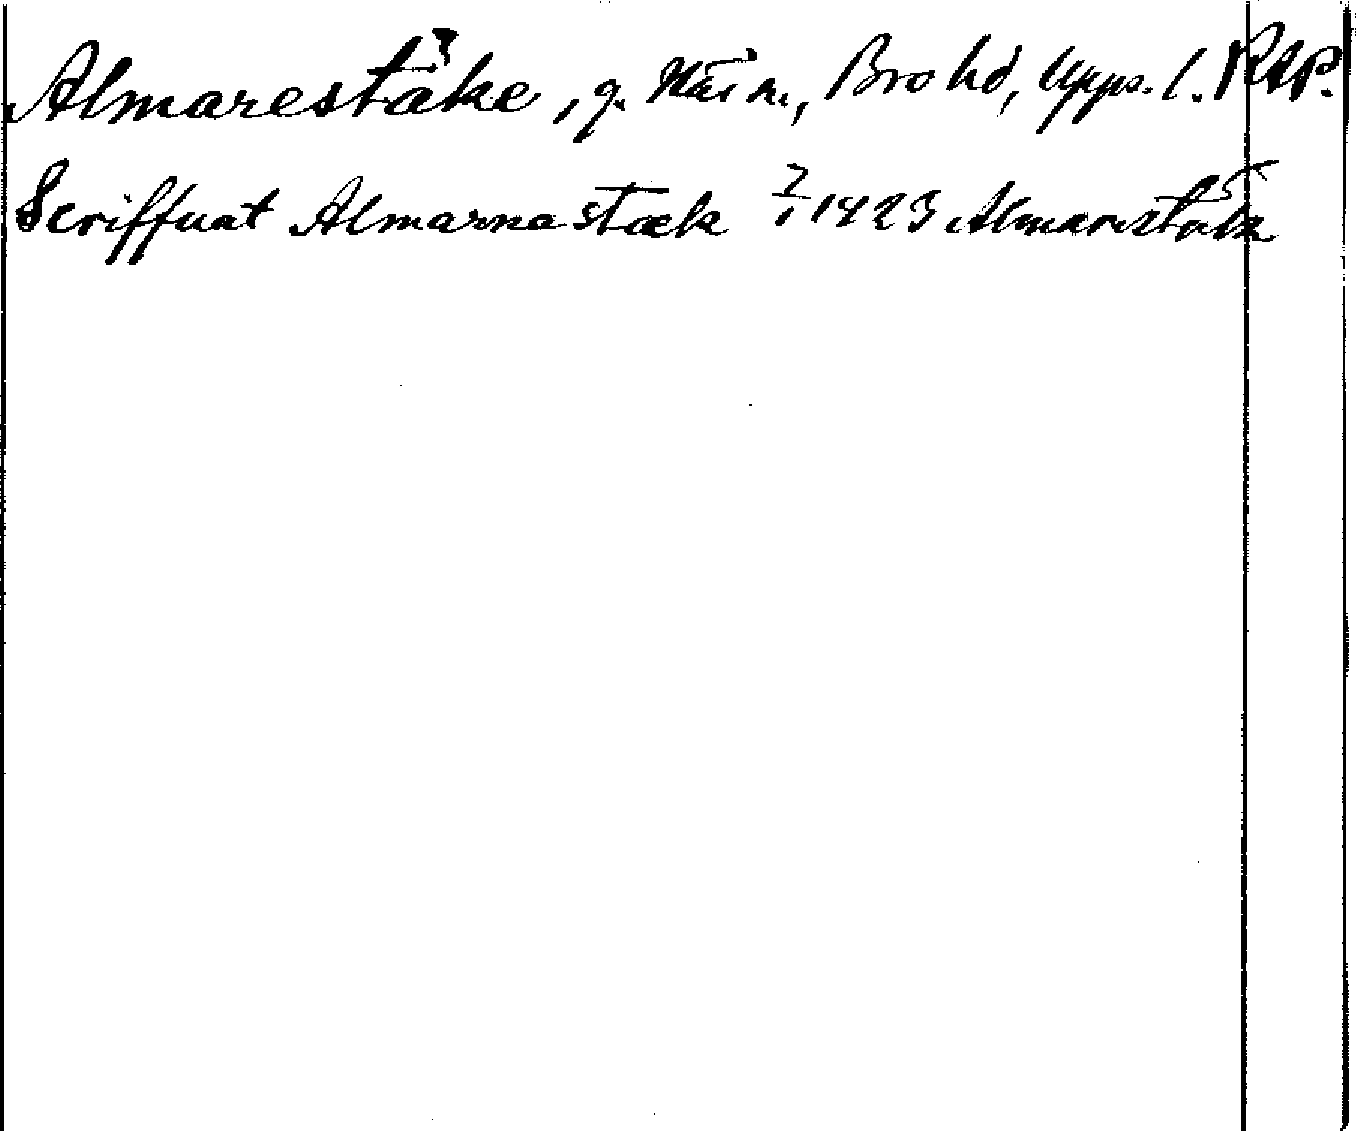 Almarestäke, g. Näs sn., Bro hd, Upps. l. RAP.
Scriffuat Almarnastæk 7/1 1423 Almarestäk